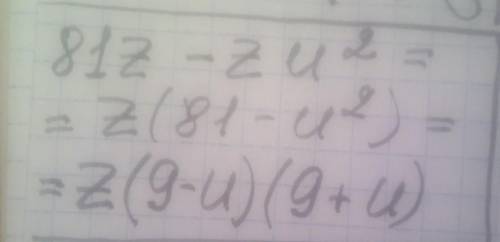 81z - zu² =
= z(81 - u²) =
= z(9 - u)(9 + u)